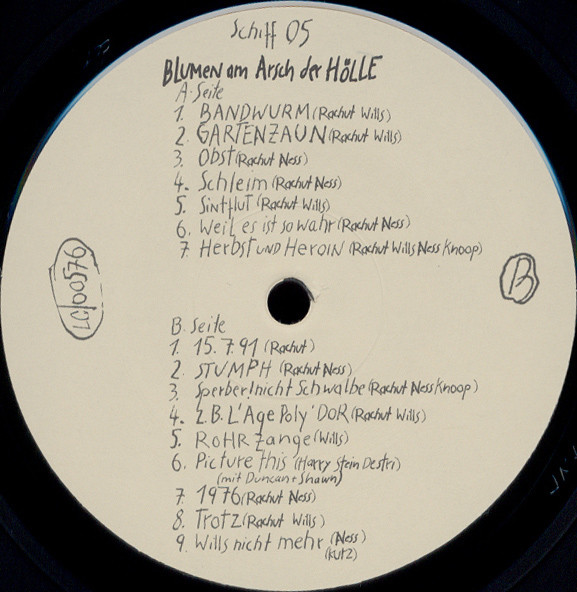 Schiff 05
BLUMEN am Arsch der HÖLLE
A. Seite
1. BANDWURM (Rachut Wills)
2. GARTENZAUN (Rachut Wills)
3. Obst (Rachut Ness)
4. Schleim (Rachut Ness)
5. Sintflut (Rachut Wills)
6. Weil es ist so wahr (Rachut Ness)
7. Herbst UND HEROIN (Rachut Wills Ness Knoop)
LC/00576
B
B. Seite
1. 15.7.91 (Rachut)
2. STUMPH (Rachut Ness)
3. Sperber! nicht Schwalbe (Rachut Ness Knoop)
4. Z.B. L'Age Poly'DOR (Rachut Wills)
5. ROHRZange (Wills)
6. Picture this (Harry Stein Destri)
(mit Duncan + Shawn)
7. 1976 (Rachut Ness)
8. Trotz (Rachut Wills)
9. Wills nicht mehr (Ness)
(Kutz)